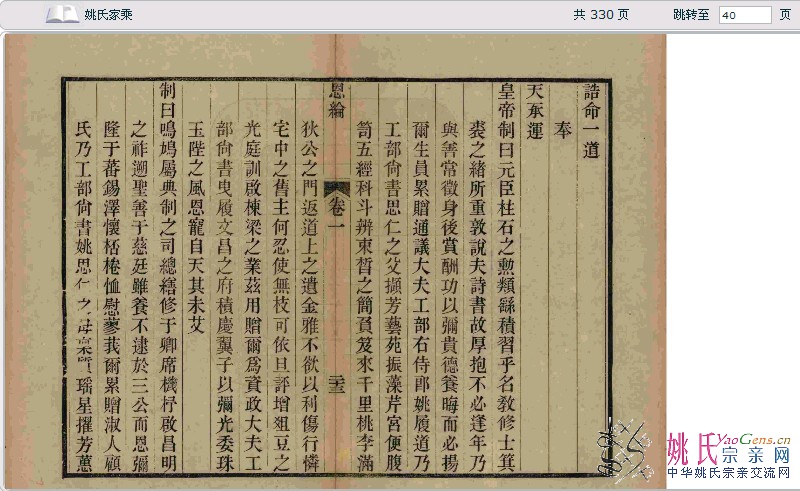 姚氏家乘
共 330 页
跳转至 40 页
誥命一道
奉
天承運
皇帝制曰元臣柱石之勲類繇積習乎名教修士箕
裘之緒所重敦說夫詩書故厚抱不必逢年乃
與善常徵身後賞酬功以彌貴德養晦而必揚
爾生員累贈通議大夫工部右侍郎姚履道乃
工部尙書思仁之父擷芳藝苑振藻芹宮便腹
笥五經科斗辨束晳之簡負笈來千里桃李滿
恩綸
卷一
二十三
狄公之門返道上之遺金雅不欲以利傷行憐
宅中之舊主何忍使無枝可依旦評增俎豆之
光庭訓啟棟梁之業茲用贈爾爲資政大夫工
部尙書曳履文昌之府積慶翼子以彌光委珠
玉陛之風恩寵自天其未艾
制曰鳴鳩屬典制之司總繕修于卿席機杼啟昌明
之祚遡聖善于慈廷雖養不逮於三公而恩彌
隆于蕃錫澤懷桮棬恤慰蓼莪爾累贈淑人顧
氏乃工部尙書姚思仁之母稟質瑶星擢芳蕙
姚氏YaoGens.cn
宗亲网
中华姚氏宗亲交流网